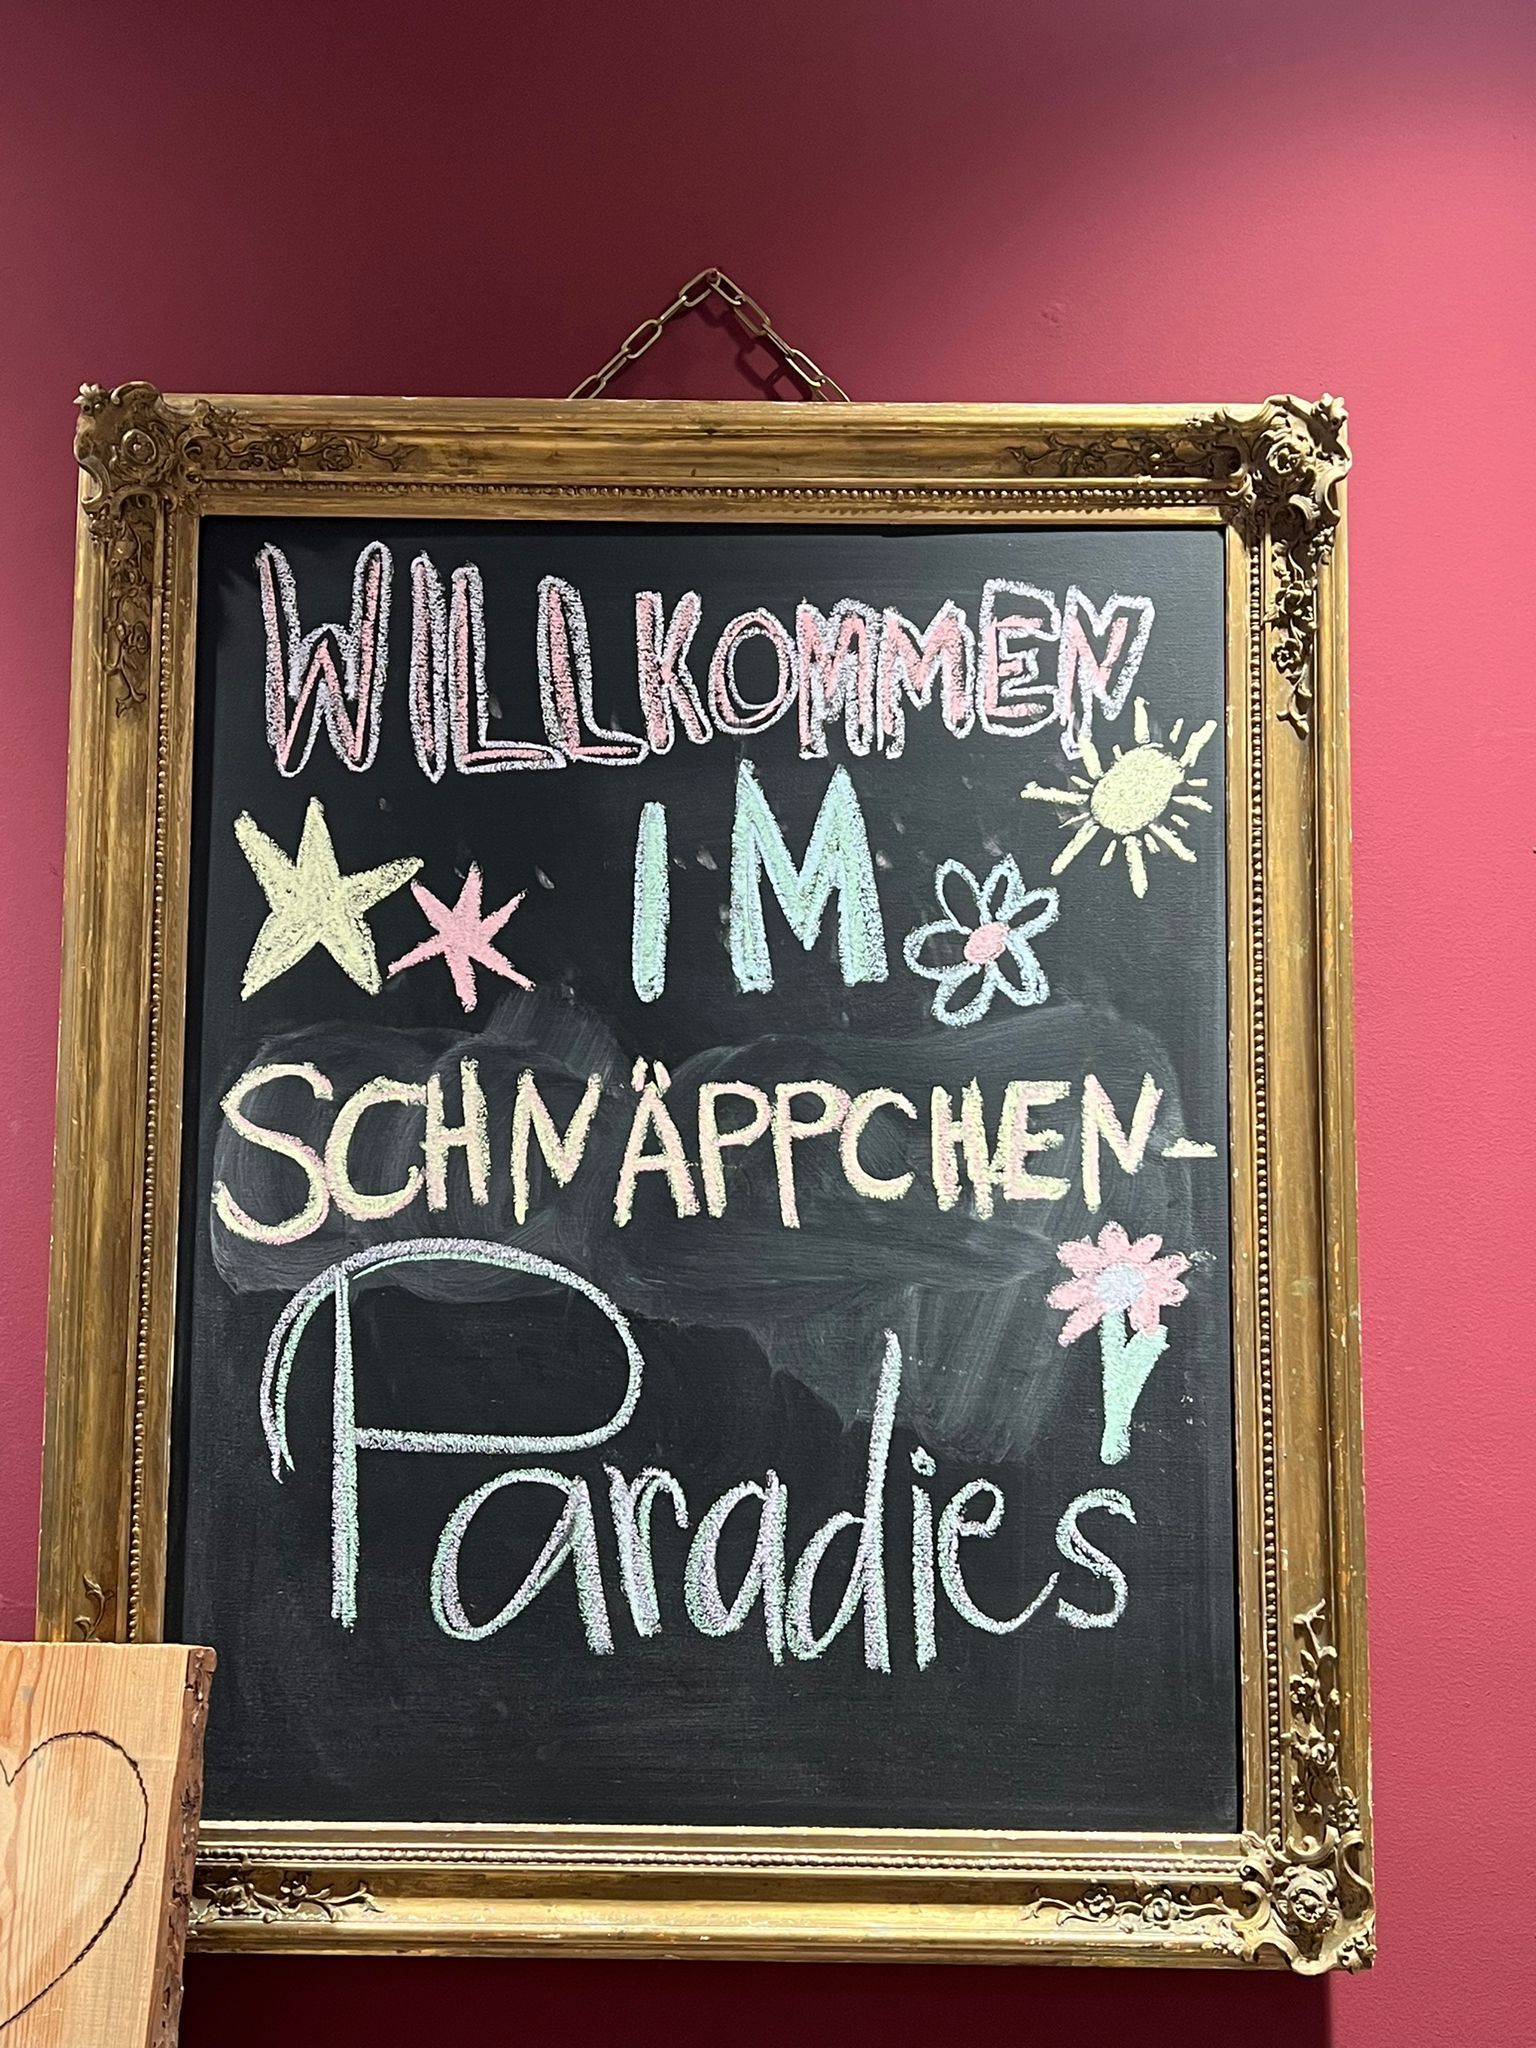 WILLKOMMEN
IM
SCHNÄPPCHEN-
Paradies